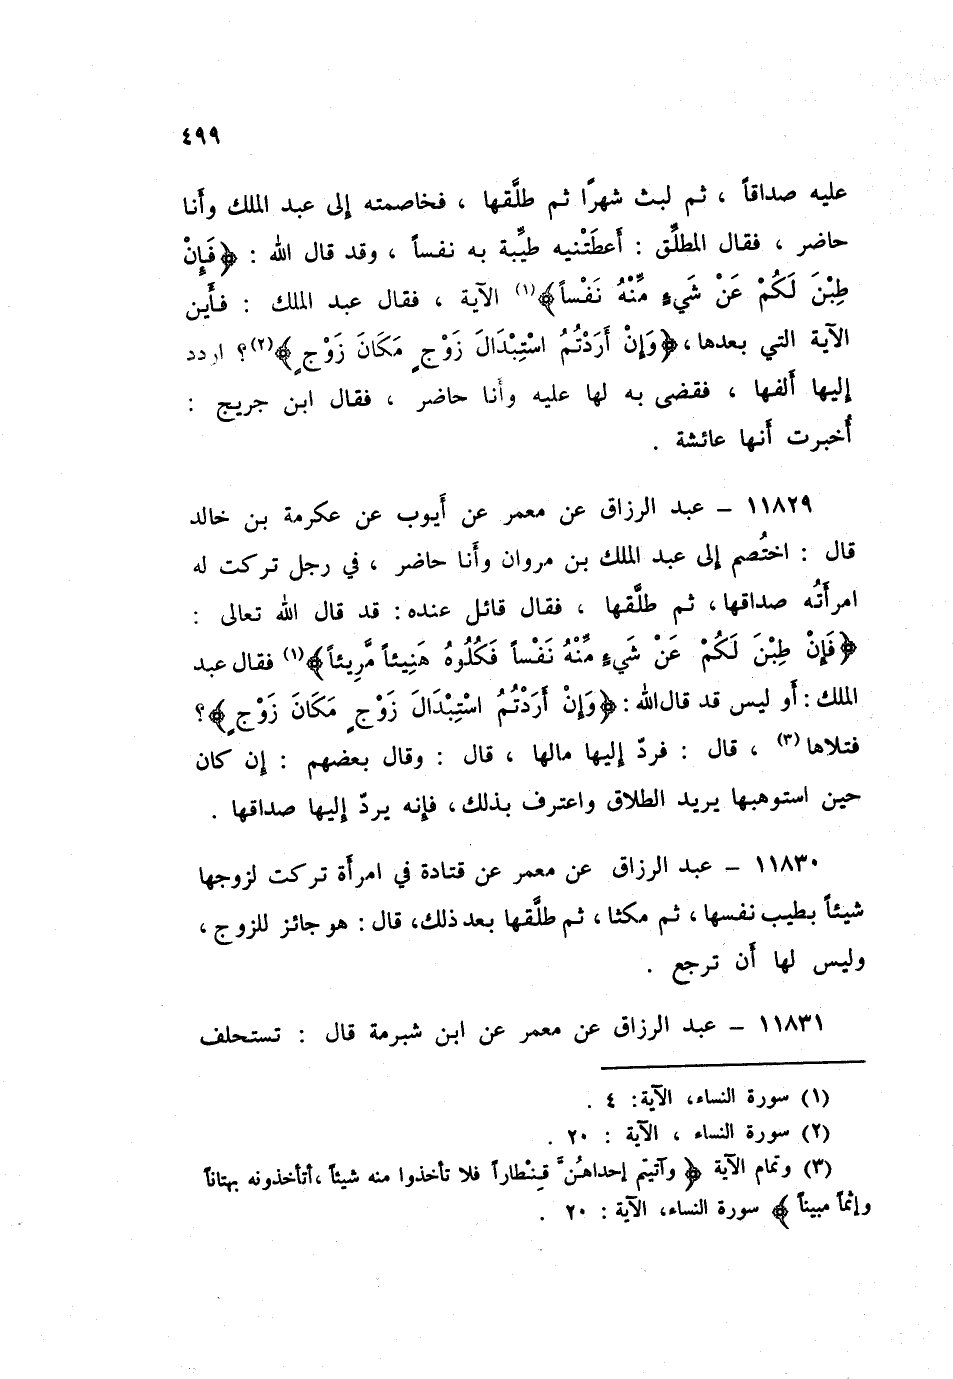 ٤٩٩
عليه صداقاً ، ثم لبث شهرًا ثم طلَّقها ، فخاصمته إلى عبد الملك وأَنا
حاضر ، فقال المطلِّق : أَعطَتْنيه طيِّبة به نفساً ، وقد قال الله : ﴿فَإِنْ
طِبْنَ لَكُمْ عَنْ شَيءٍ مِّنْهُ نَفْساً﴾(١) الآية ، فقال عبد الملك : فأَين
الآية التي بعدها، ﴿وَإِنْ أَرَدْتُمُ اسْتِبْدَالَ زَوْجٍ مَكَانَ زَوْجٍ﴾(٢)؟ اردد
إليها أَلفها ، فقضى به لها عليه وأَنا حاضر ، فقال ابن جريج :
أُخبرت أَنها عائشة .
١١٨٢٩ – عبد الرزاق عن معمر عن أَيوب عن عكرمة بن خالد
قال : اختُصم إلى عبد الملك بن مروان وأَنا حاضر ، في رجل تركت له
امرأَتُه صداقها، ثم طلَّقها ، فقال قائل عنده: قد قال الله تعالى :
﴿فَإِنْ طِبْنَ لَكُمْ عَنْ شَيءٍ مِّنْهُ نَفْساً فَكُلُوهُ هَنِيئاً مَّرِيئاً﴾(١) فقال عبد
الملك : أَو ليس قد قال الله : ﴿وَإِنْ أَرَدْتُمُ اسْتِبْدَالَ زَوْجٍ مَكَانَ زَوْجٍ﴾؟
فتلاها(٣) ، قال : فردّ إليها مالها ، قال : وقال بعضهم : إن كان
حين استوهبها يريد الطلاق واعترف بذلك، فإنه يردّ إليها صداقها .
١١٨٣٠ – عبد الرزاق عن معمر عن قتادة في امرأَة تركت لزوجها
شيئاً بطيب نفسها، ثم مكثا، ثم طلَّقها بعد ذلك، قال : هو جائز للزوج ،
وليس لها أَن ترجع .
١١٨٣١ – عبد الرزاق عن معمر عن ابن شبرمة قال : تستحلف
(١) سورة النساء، الآية: ٤ .
(٢) سورة النساء ، الآية : ٢٠ .
(٣) وتمام الآية ﴿وآتيتم إحداهُنَّ قِنْطاراً فلا تأخذوا منه شيئاً ،أتأخذونه بهتاناً
وإثماً مبيناً﴾ سورة النساء، الآية : ٢٠ .